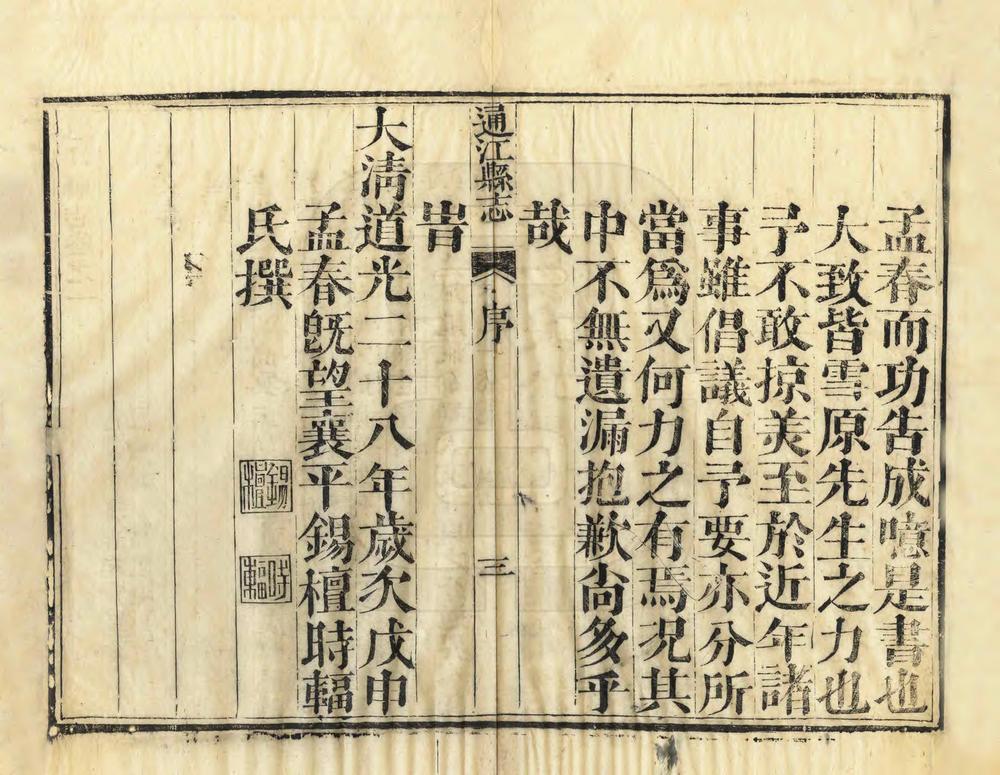 孟春而功告成噫是書也
大致皆雪原先生之力也
予不敢掠美至於近年諸
事雖倡議自予要亦分所
當爲又何力之有焉況其
中不無遺漏抱歉尚多乎
哉
通江縣志
序
三
旹
大清道光二十八年歲次戊申
孟春旣望襄平錫檀時輻
氏撰
錫檀
時輻